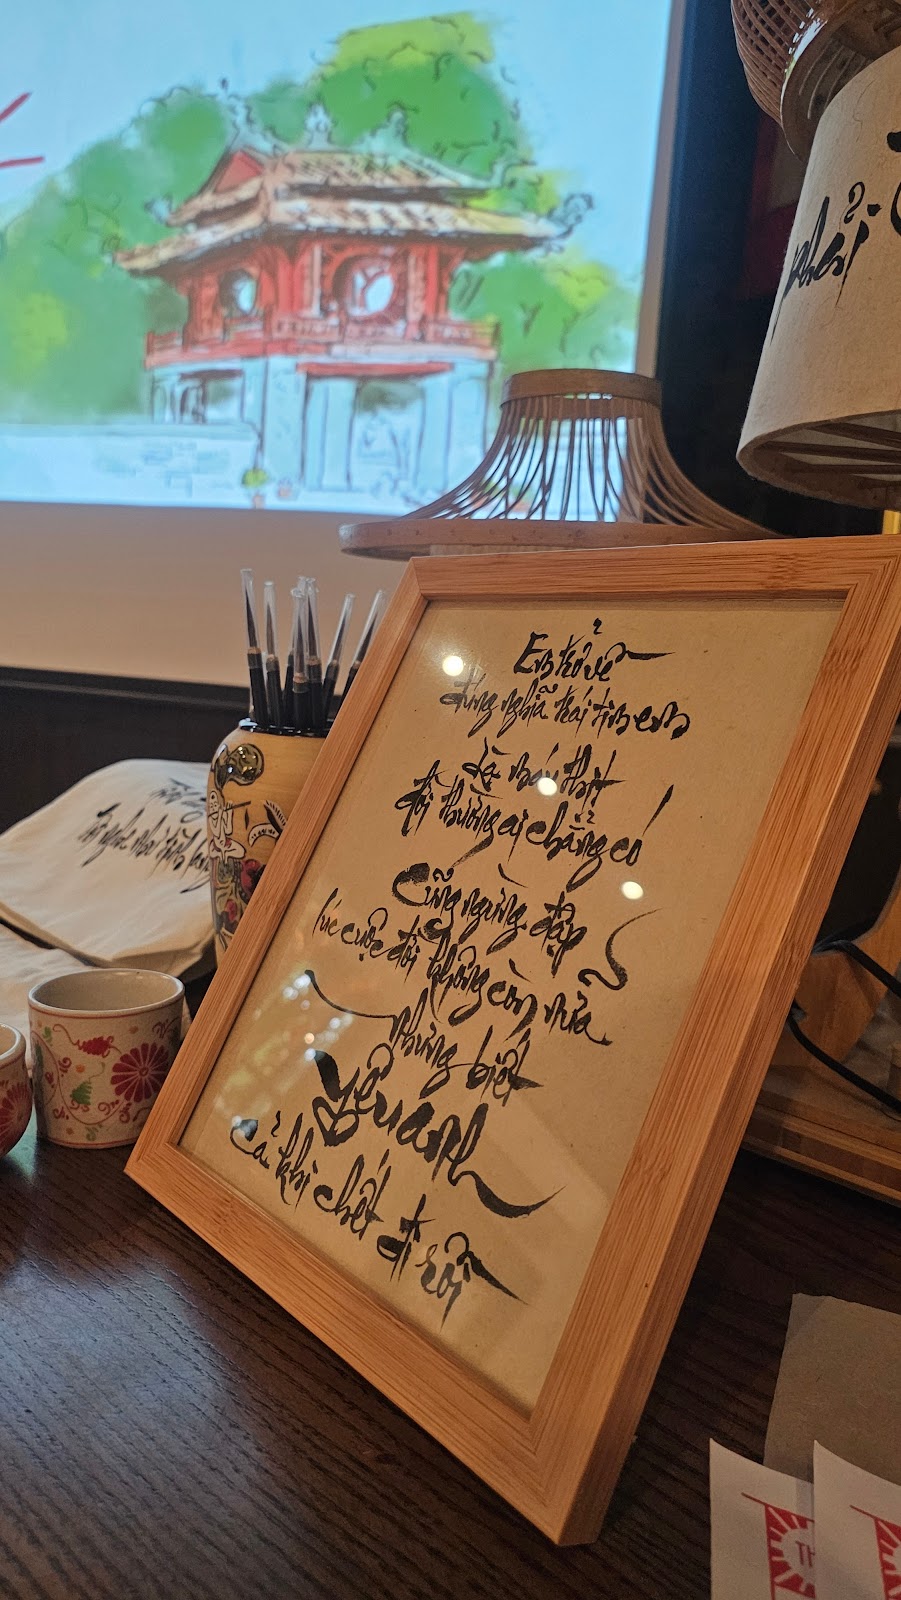 Em trở về
đúng nghĩa trái tim em
Là máu thịt
đời thường ai chẳng có
Cũng ngừng đập
lúc cuộc đời không còn nữa
nhưng biết
yêu anh
Cả khi chết đi rồi
phải